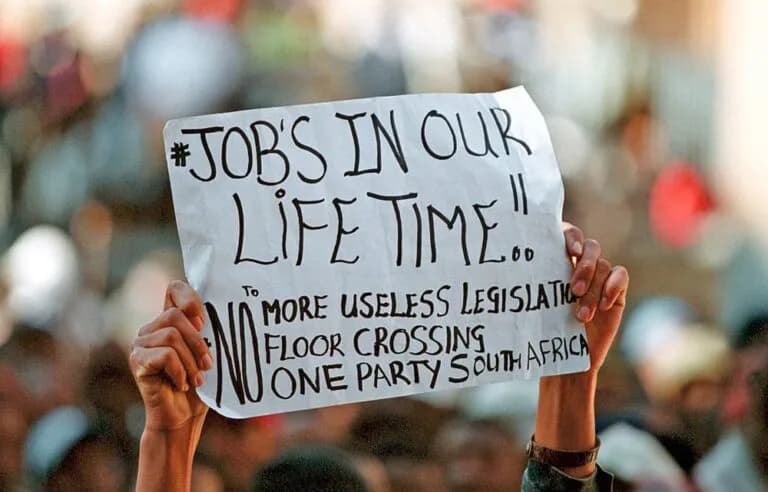 #JOB'S IN OUR
LIFE TIME!!
NO TO MORE USELESS LEGISLATIO
FLOOR CROSSING
ONE PARTY SOUTH AFRICA